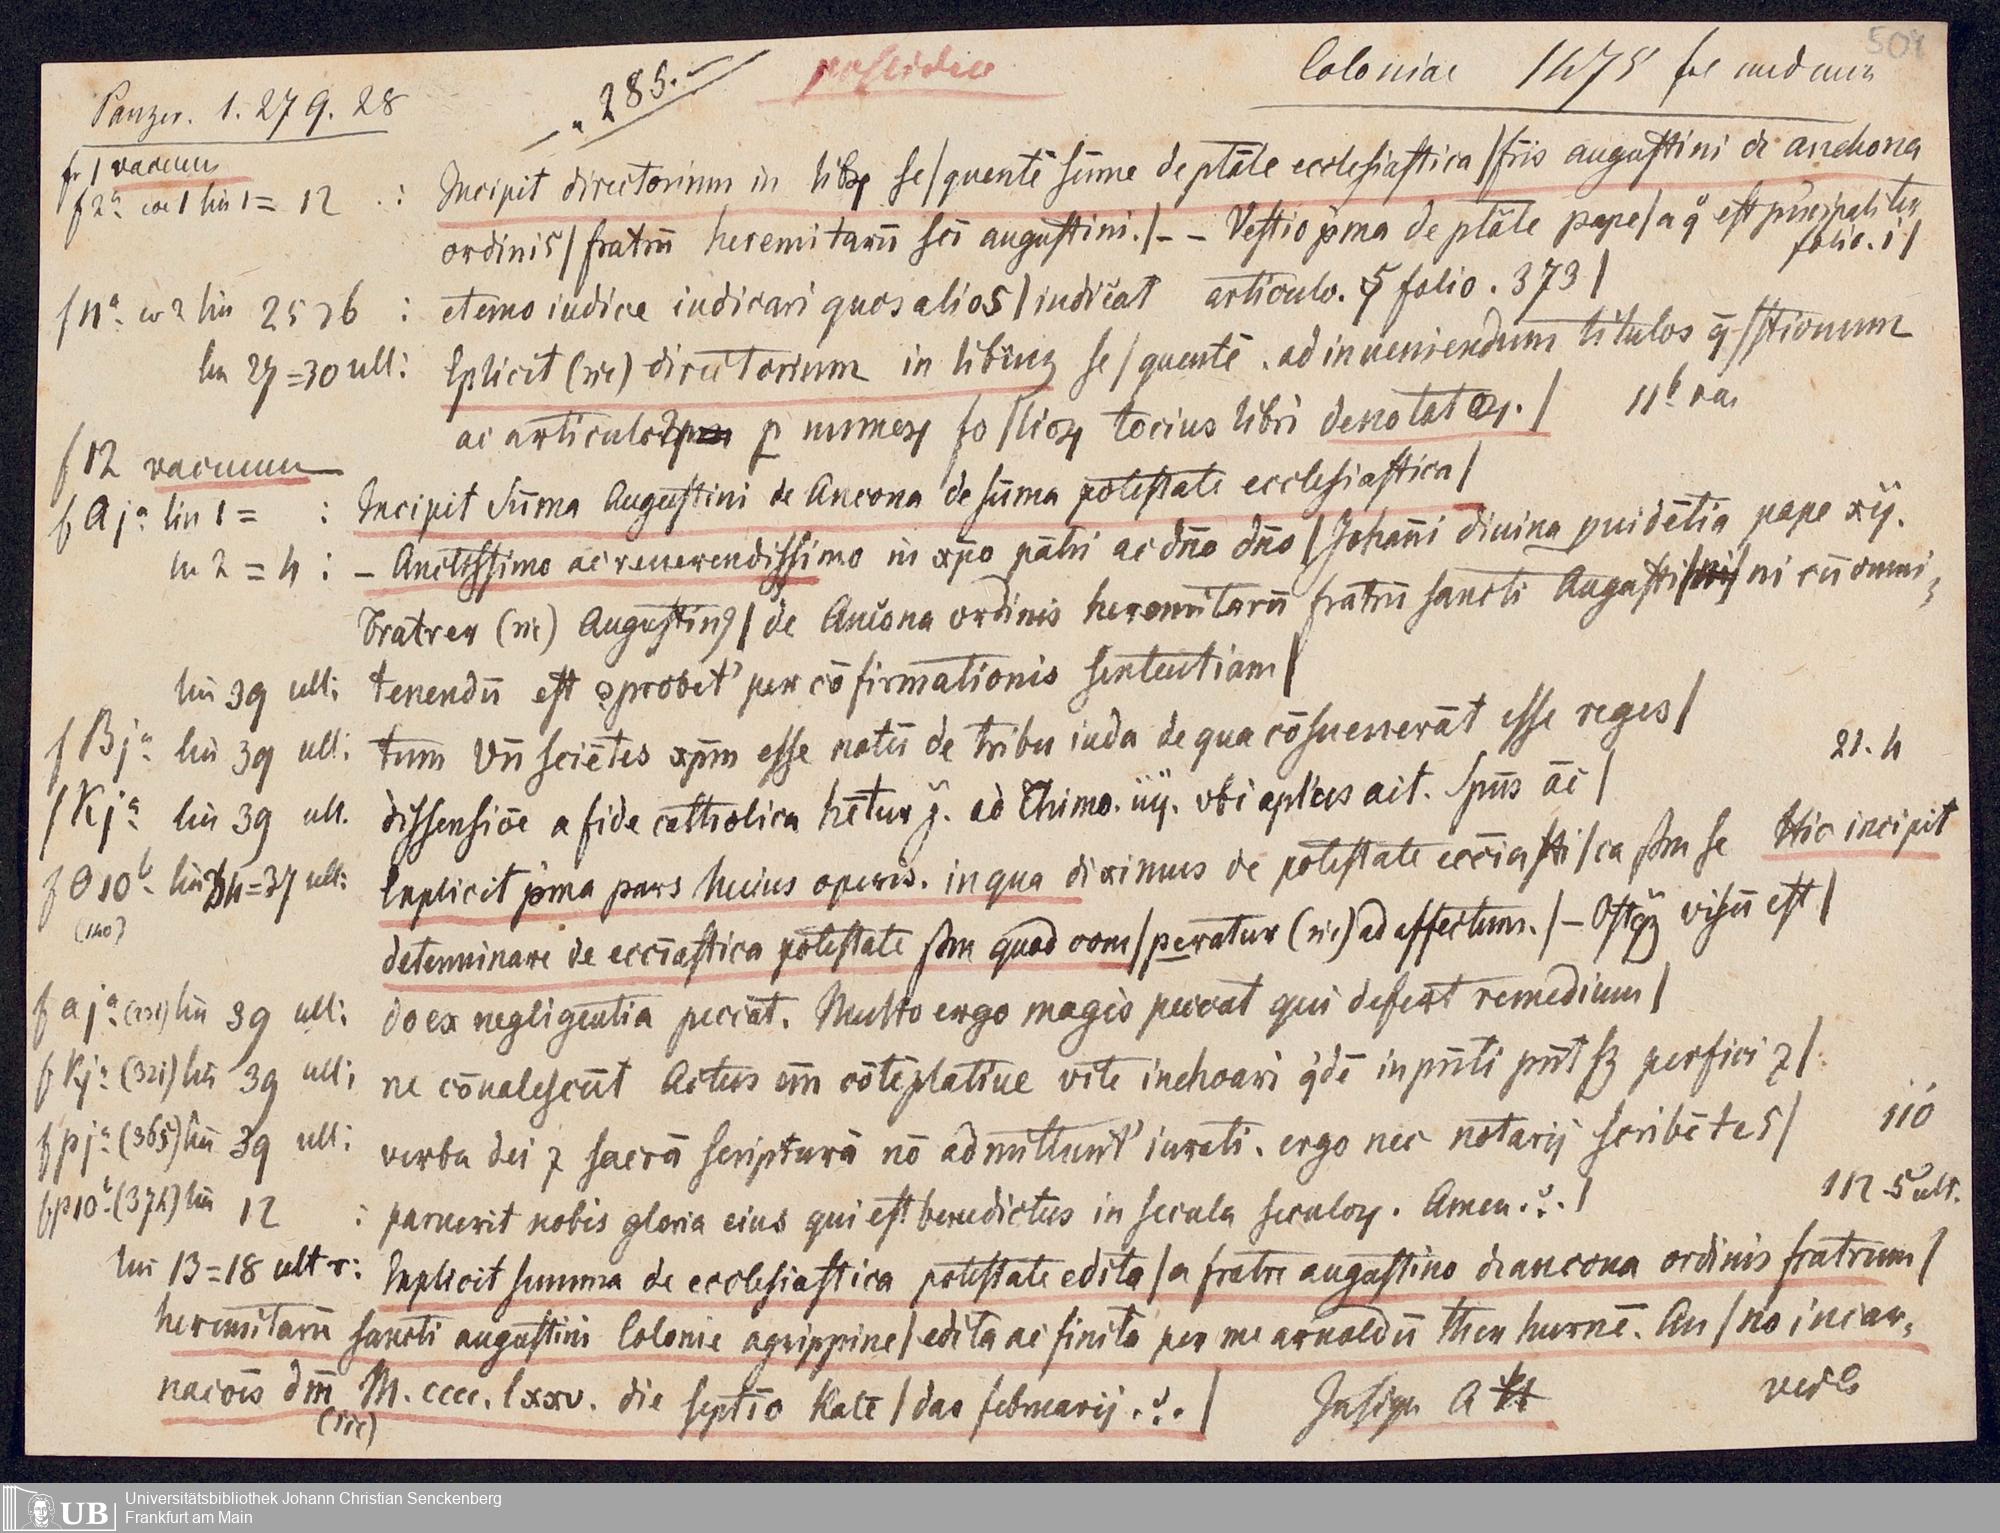 504
Panzer. 1. 279. 28
285.
possideo
Coloniae 1475
f. 1 vacuum
f 2a co 1 lin 1 = 12 : Incipit directorium in libꝝ se/quentē sūme de ptāte ecclesiastica/fris augustini de anchona
ordinis/fratrū heremitarū scī augustini./-- Uestio pma de ptāte pape/a q̊ est pncipaliter
folio. i/
f 11a co 2 lin 25 26 : eterno iudice iudicari quos alios/iudicat articulo. 5 folio. 373/
lin 27=30 ult: Explicit (sic) directorium in librūꝫ se/quentē. ad inueniendum titulos q̄/stionum
ac articuloꝝ ꝑ numeꝝ fo/lioꝝ tocius libri denotatoꝝ./ 11b va
f 12 vacuum
f A ja lin 1 = : Incipit Sūma Augustini de Ancona de sūma potestate ecclesiastica/
lin 2 = 4 : – Anctissimo ac reuerendissimo in xp̄o patri ac dn̄o dn̄o/Johanni diuina puidētia pape xij.
Fratrer (sic) Augustinꝯ/de Ancona ordinis heremitarū fratrū sancti Augusti/ni cū omni,
lin 39 ult: tenendū est ꝯprobet' per cōfirmationis sententiam/
f B ja lin 39 ult: tum Un̄ sciētes xp̄m esse natū de tribu iuda de qua cōsueuerāt esse reges/
21. 4
f K ja lin 39 ult. dissensiōe a fide catholica hētur j. ad Thimo. iiij. vbi aplus ait. Spūs āc/
f O 10b lin 34=37 ult: Explicit pma pars huius operis. in qua diximus de potestate ecciasti/ca sm se Hic incipit
(140)
determinare de ecciastica potestate sm quod com/peratur (sic) ad affectum./– Ostqꝫ visū est/
f a ja (141) lin 39 ult: do ex negligentia peccat. Multo ergo magis peccat qui defert remedium/
f K ja (321) lin 39 ult: ne cōualescūt Actus em̄ cōtēplatiue vite inchoari q̇dē in pn̄ti pn̄t sꝫ perfici ⁊/
f p ja (365) lin 39 ult: verba dei ⁊ sacrā scripturā nō admittunt' iurati. ergo nec notarij scribētes/ 110
f p 10b (374) lin 12 : paruerit nobis gloria eius qui est benedictus in secula seculoꝝ. Amen.:./ 112 5 ult.
lin 13=18 ult r: Explicit summa de ecclesiastica potestate edita/a fratre augustino de ancona ordinis fratrum/
heremitarū sancti augustini Colonie agrippine/edita ac finita per me arnoldū ther hurnē. An/no incar,
nacōis dm̄ M. cccc. lxxv. die septīo Kalē/das februarij.:./ Insign A tH
(sic)
Universitätsbibliothek Johann Christian Senckenberg
UB
Frankfurt am Main